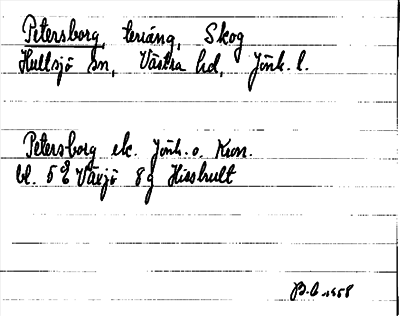 Petersborg, teräng, Skog
Hultsjö sn, Västra hd, Jönk. l.
Petersborg ek. Jönk. o. Kron.
bl. 5E Växjö 8g Hisshult
B.C. 1958